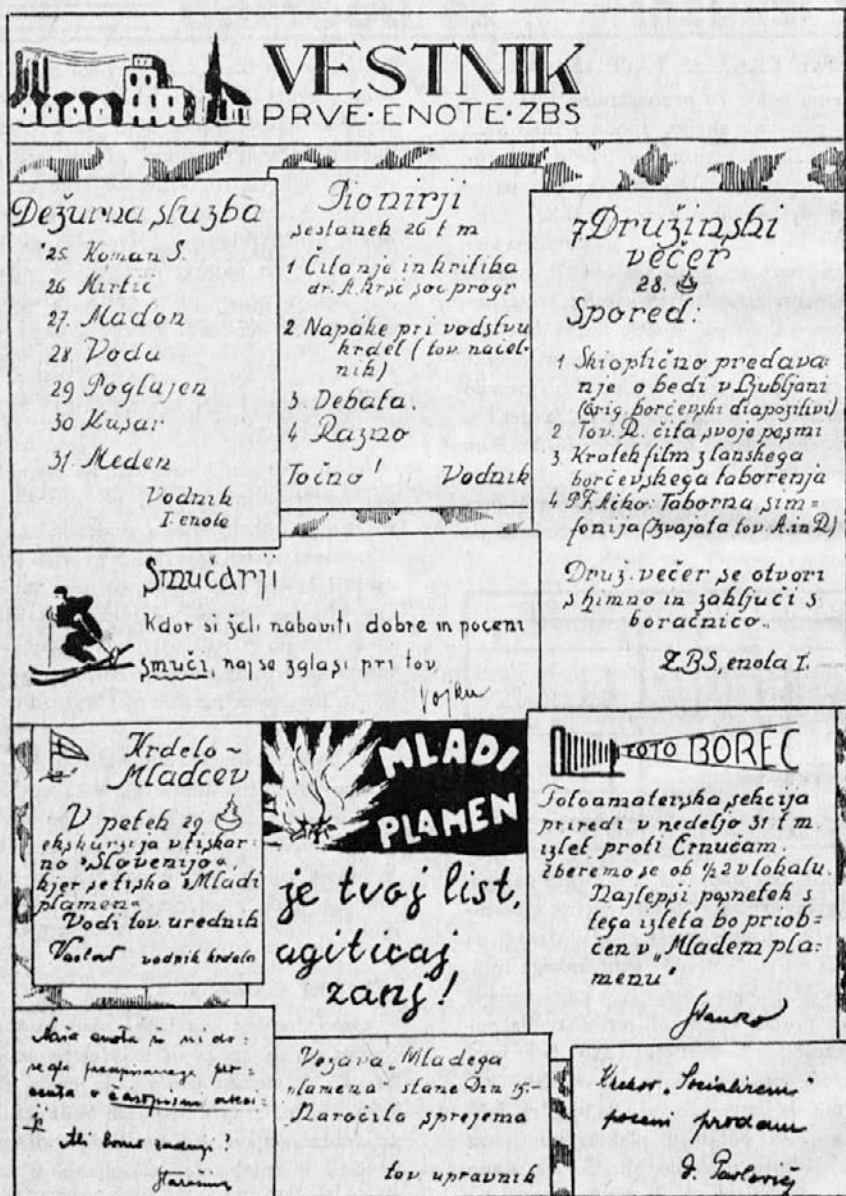 VESTNIK
PRVE·ENOTE·ZBS
Dežurna služba
25. Koman S.
26 Mirtič
27. Madon
28. Voda
29 Poglajen
30 Kusar
31 Meden
Vodnik
I enote
Pionirji
sestanek 26 t m
1 Čitanje in kritika
dr. A. Kršč soc progr
2. Napake pri vodstvu
krdel (tov. načel-
nik)
3 Debata.
4 Razno
Točno! Vodnik
7 Družinski
večer
28.
Spored:
1 Skioptično predava=
nje o bedi v Ljubljani
(orig. borčevski diapozitivi)
2 Tov. R. čita svoje pesmi
3. Kratek film z lanskega
borčevskega taborenja
4 Taborna sim=
fonija (Izvajata tov. A. in D.)
Druž. večer se otvori
s himno in zaključi s
boračnico.
ZBS, enota I.
Smučarji
Kdor si želi nabaviti dobre in poceni
smuči, naj se zglasi pri tov.
Vojku
Krdelo ~
Mladcev
V petek 29
ekskurzija v tiskar=
no »Slovenijo«
kjer se tiska »Mladi
plamen«
Vodi tov. urednik
vodnik krdela
MLADI
PLAMEN
je tvoj list,
agitiraj
zanj!
FOTO BOREC
Fotoamaterska sekcija
priredi v nedeljo 31 t m
izlet proti Črnučam.
Zberemo se ob ½2 v lokalu.
Najlepši posnetek s
tega izleta bo priob=
čen v "Mladem pla=
menu"
Stanko
Naša enota še ni do=
segla predpisanega pro=
centa v
Ali bomo zadnji?
Vezava Mladega
plamena stane Din 15.-
Naročila sprejema
tov. upravnik
"Socializem"
poceni prodam